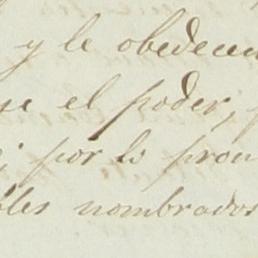 y le obedecen
se el poder,
por lo pron
bles nombrados